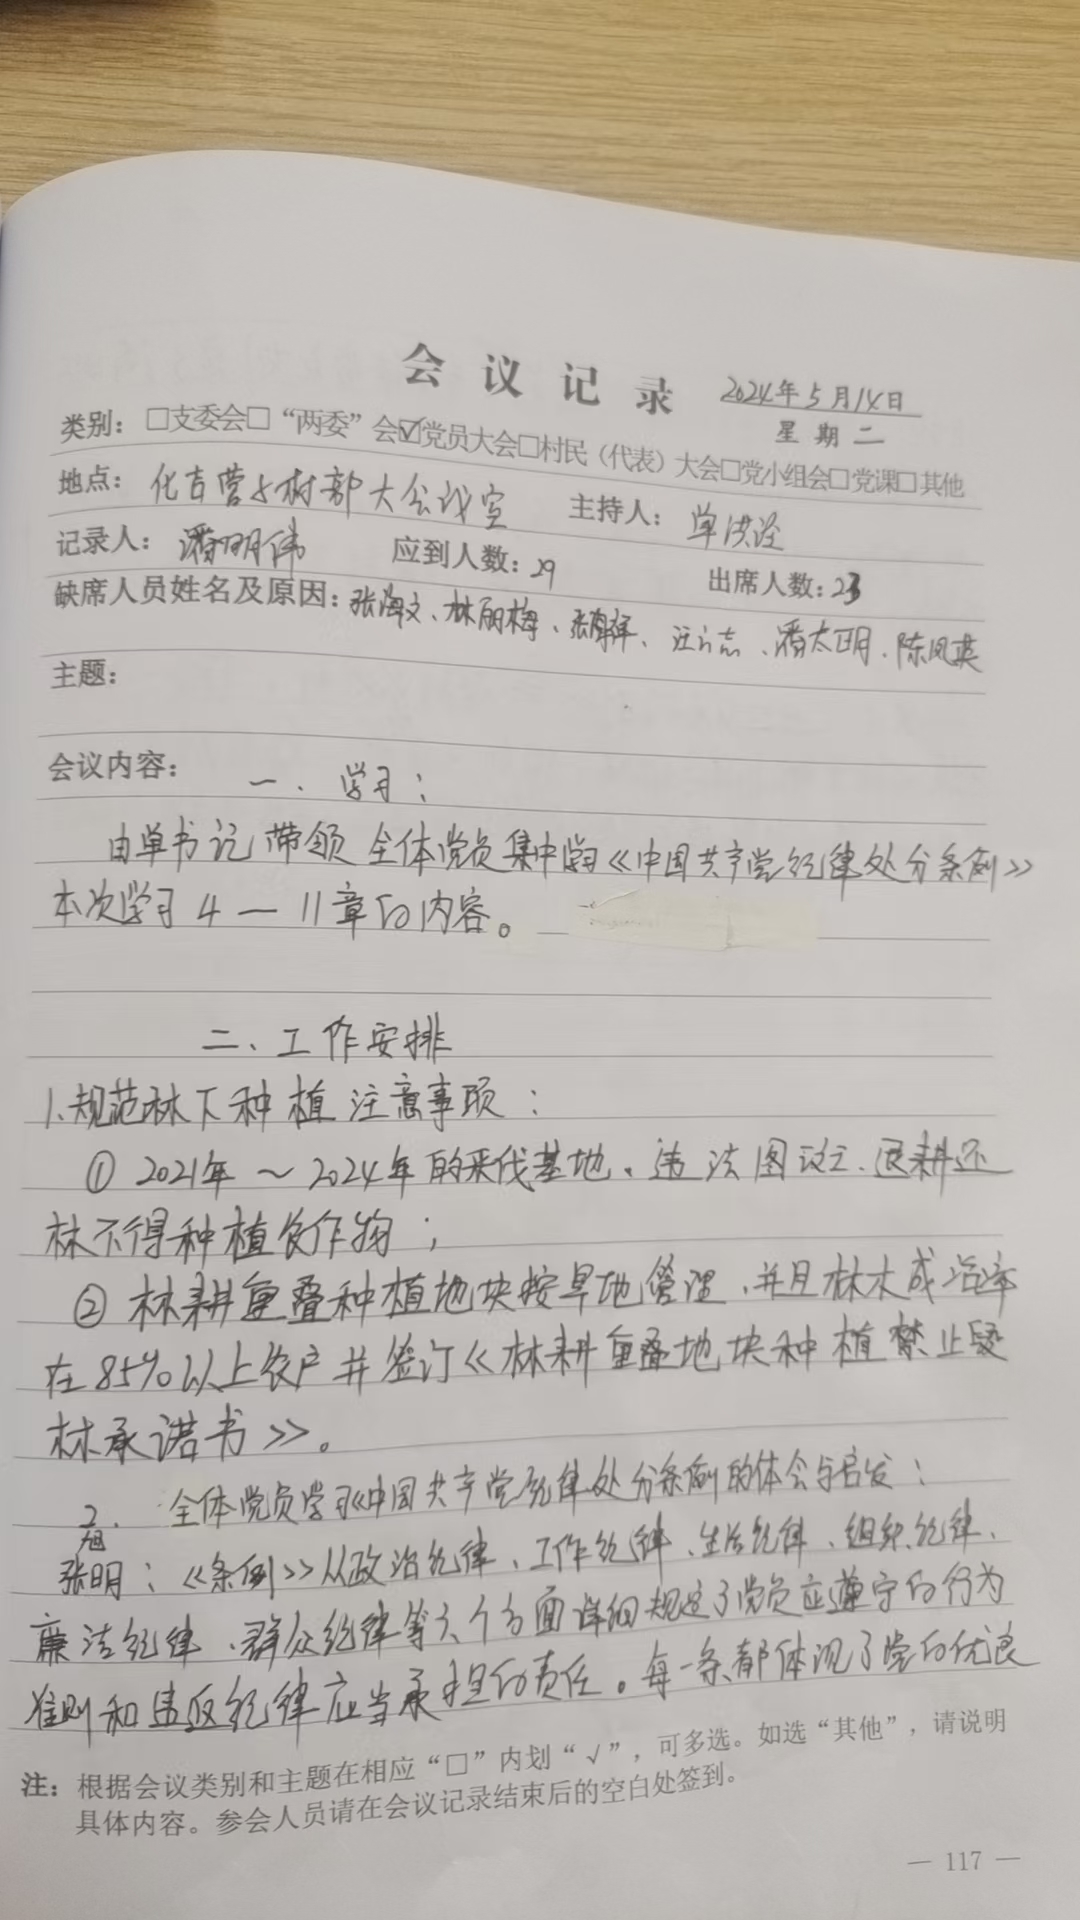 会议记录 2024年5月14日
星期二
类别：□支委会□“两委”会☑党员大会□村民（代表）大会□党小组会□党课□其他
地点：化吉营子村部大会议室 主持人：单洪
记录人：潘明伟 应到人数：29 出席人数：23
缺席人员姓名及原因：张海文、林丽梅、张、汪志、潘太明、陈凤英
主题：
会议内容： 一、学习：
由单书记带领全体党员集中学习《中国共产党纪律处分条例》
本次学习4—11章的内容。
二、工作安排
1.规范林下种植注意事项：
① 2021年～2024年的采伐基地、违法图斑、退耕还
林不得种植农作物；
② 林耕重叠种植地块按旱地管理，并且林木成活率
在85%以上农户并签订《林耕重叠地块种植禁止毁
林承诺书》。
2. 全体党员学习《中国共产党纪律处分条例的体会与启发：
张明旭：《条例》从政治纪律、工作纪律、生活纪律、组织纪律、
廉洁纪律、群众纪律等六个方面详细规定了党员应遵守的行为
准则和违反纪律应当承担的责任。每一条都体现了党的优良
注：根据会议类别和主题在相应“□”内划“√”，可多选。如选“其他”，请说明
具体内容。参会人员请在会议记录结束后的空白处签到。
— 117 —